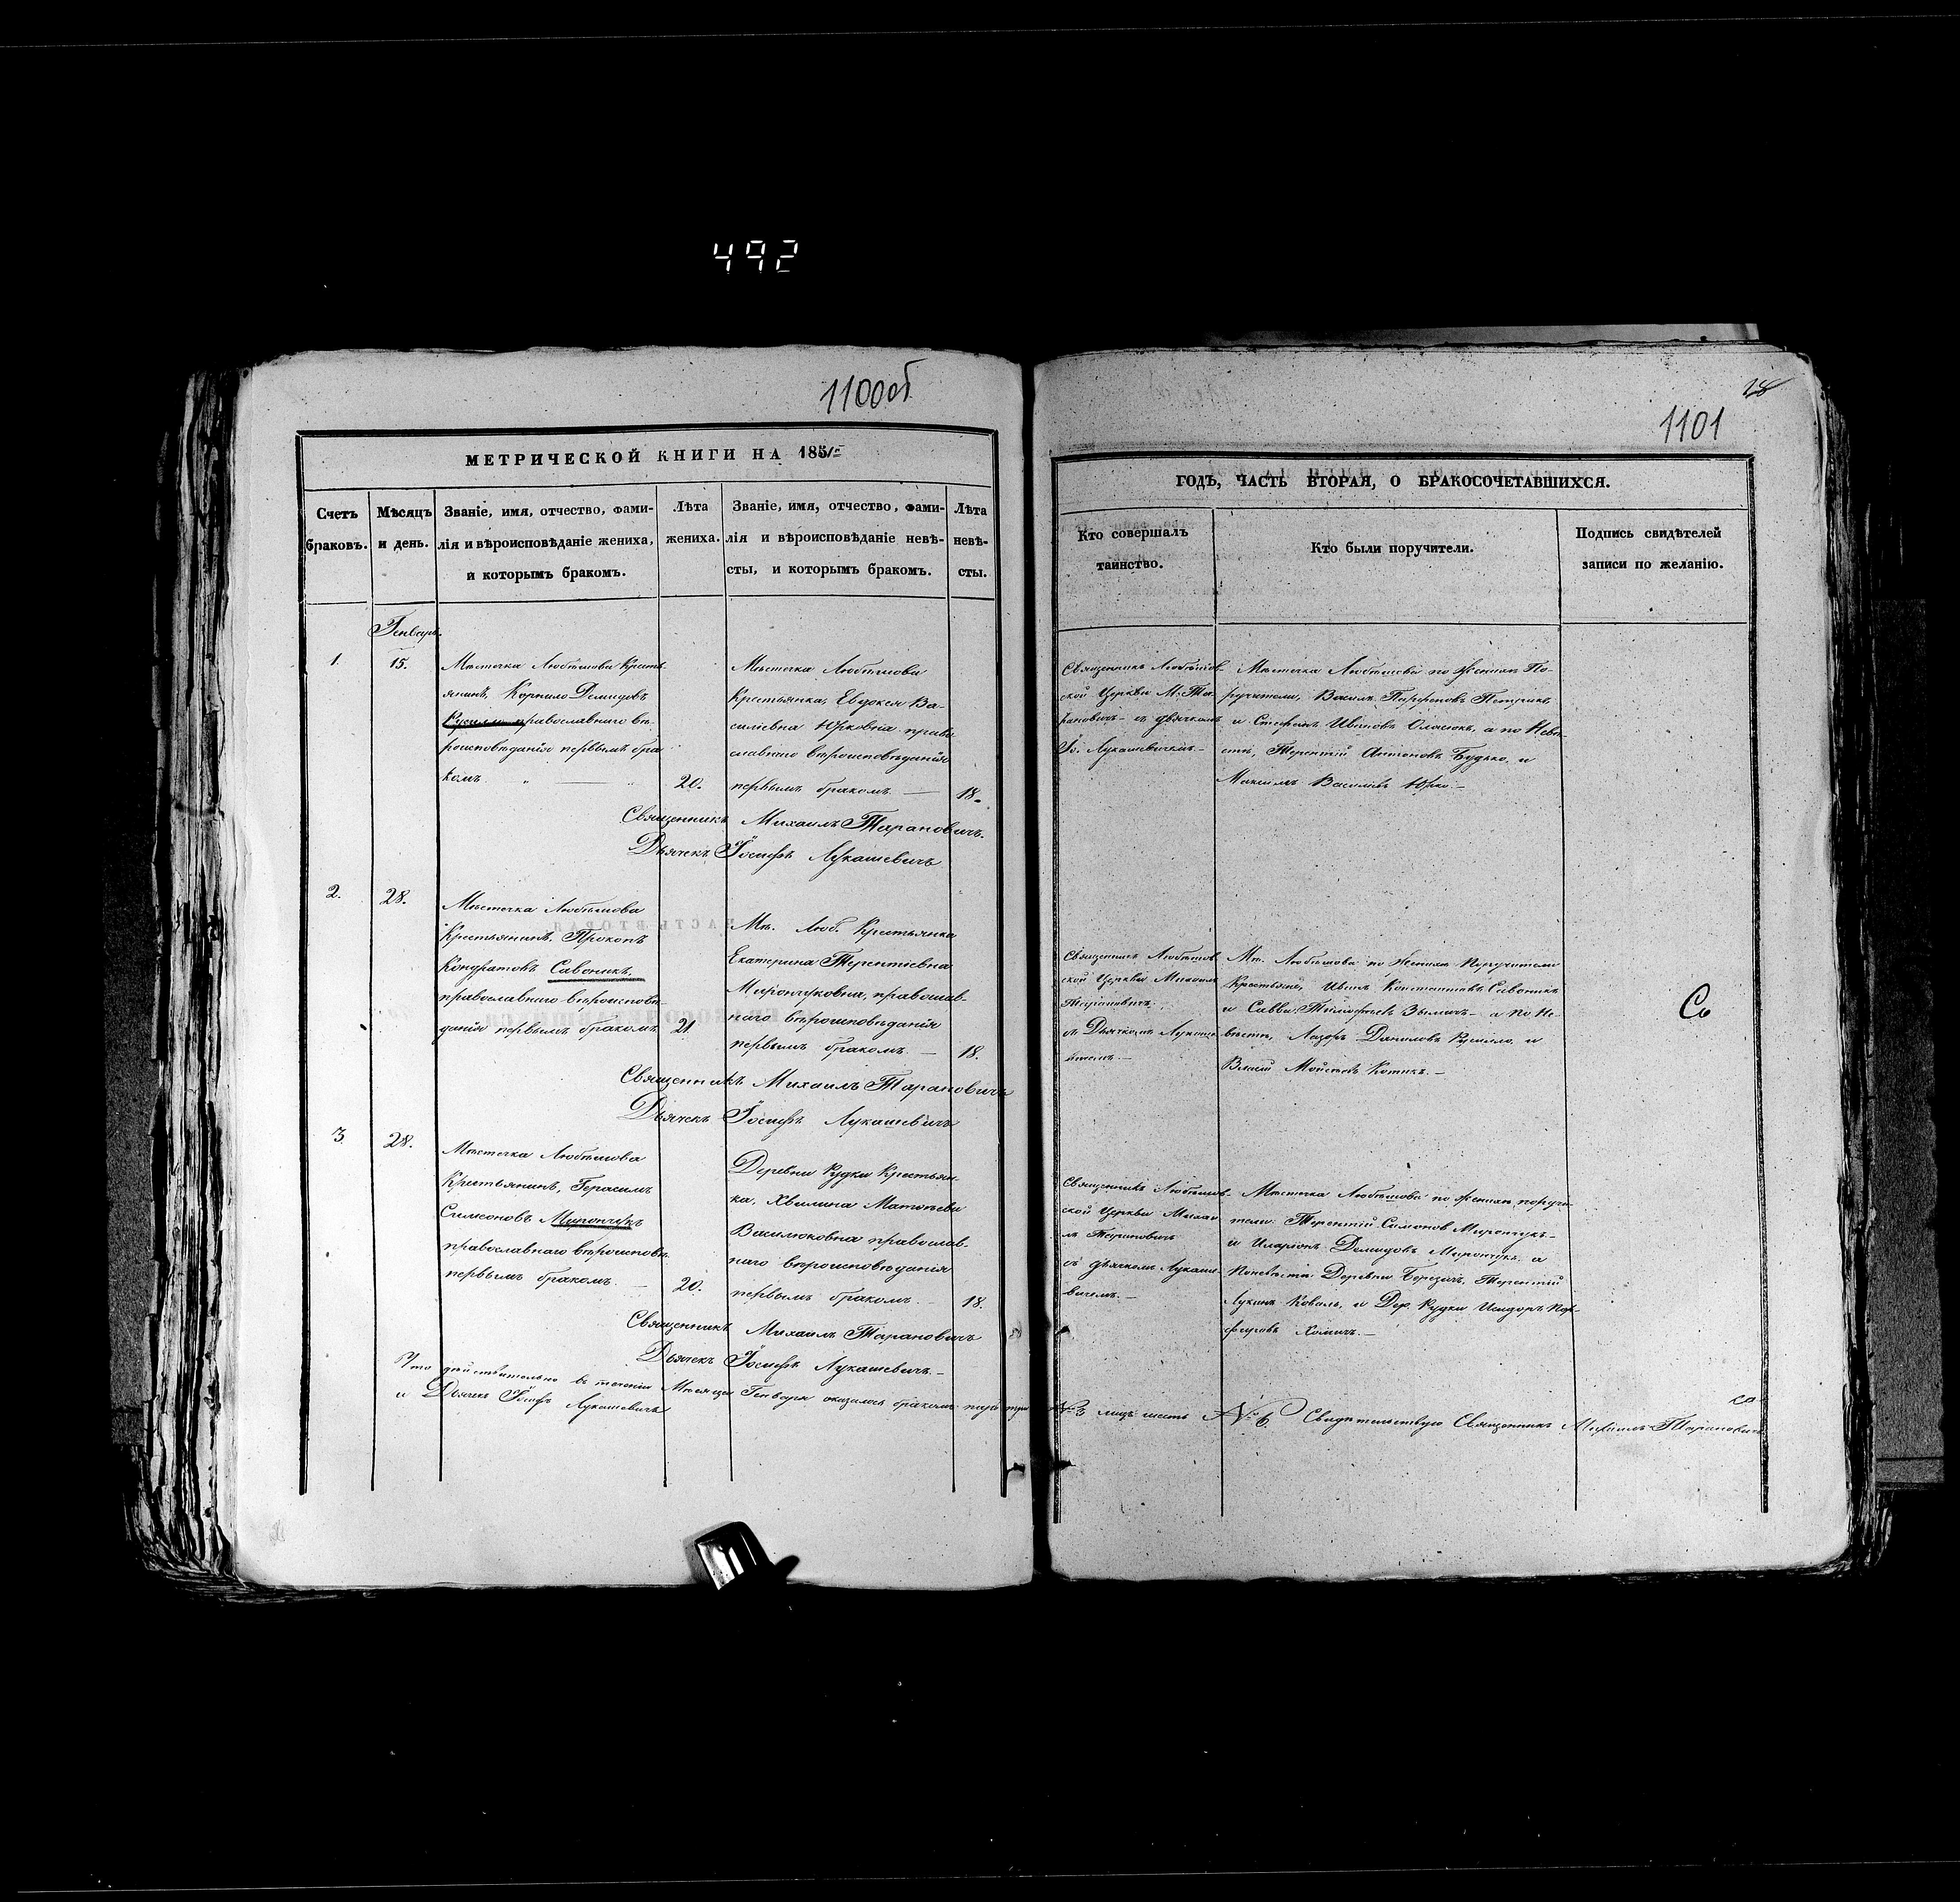 492
1100об
МЕТРИЧЕСКОЙ КНИГИ НА 185
Счетъ браковъ.
Мѣсяцъ и день.
Званіе, имя, отчество, фами-
лія и вѣроисповѣданіе жениха,
и которымъ бракомъ.
Лѣта
жениха.
Званіе, имя, отчество, фами-
лія и вѣроисповѣданіе невѣ-
сты, и которымъ бракомъ.
Лѣта
невѣ-
сты.
Генварь
1.
15.
Мѣстечка Любѣшова Крестъ-
янинъ, Корнило Демидовъ
Русилло православнаго вѣ-
роисповѣданія первымъ бра-
комъ
20.
Мѣстечка Любѣшова
Крестьянка, Евдокся Ва-
силіевна Юрковна право-
славнаго вѣроисповѣданія
первымъ бракомъ —
18.
Священникъ Михаилъ Тарановичъ.
Дьячекъ Іосифъ Лукашевичъ
2.
28.
Мѣстечка Любѣшова
Крестьянинъ, Прокопъ
Кондратовъ Савоникъ,
православнаго вѣроисповѣ-
данія первымъ бракомъ
21
Мѣ. Люб. Крестьянка
Екатерина Терентіевна
Мирончуковна, православ-
наго вѣроисповѣданія
первымъ бракомъ. —
18.
Священникъ Михаилъ Тарановичъ
Дьячекъ Іосифъ Лукашевичъ
3.
28.
Мѣстечка Любѣшова
Крестьянинъ, Герасимъ
Симеоновъ Мирончукъ
православнаго вѣроисповѣ.
первымъ бракомъ. —
20.
Деревни Рудки Крестьян-
ка, Хвилина Матѳѣева
Василюковна православ-
наго вѣроисповѣданія
первымъ бракомъ. —
18.
Священникъ Михаилъ Тарановичъ
Дьячекъ Іосифъ Лукашевичъ. —
Что дѣйствительно въ теченіи Мѣсяца Генваря оказалось бракомъ паръ три №3 лицъ шесть №6. Свидѣтельствую Священникъ Михаилъ Тарановичъ
и Дьячекъ Іосифъ Лукашевичъ
1101
ГОДЪ, ЧАСТЬ ВТОРАЯ, О БРАКОСОЧЕТАВШИХСЯ.
Кто совершалъ
таинство.
Кто были поручители.
Подпись свидѣтелей
записи по желанію.
Священникъ Любѣшов-
ской Церкви М. Та-
рановичъ — съ дьячкомъ
Іо. Лукашевичемъ —
Мѣстечка Любѣшова по Женихѣ По-
ручители, Василь Парфеновъ Петрикъ
и Стефанъ Ивановъ Оласюкъ, а по Невѣ-
стѣ, Терентій Антоновъ Будько, и
Максимъ Василіевъ Юрко —
Священникъ Любѣшов-
ской Церкви Михаилъ
Тарановичъ
съ Дьячкомъ Лукаше-
вичемъ —
Мѣ. Любѣшова по Женихѣ Поручители
Крестьяне, Иванъ Константіевъ Савоникъ
и Савва Тимофѣевъ — а по Не-
вѣстѣ, Лазоръ Даниловъ Русилло, и
Власій Мойсѣевъ Котикъ. —
Священникъ Любѣшов-
ской Церкви Михаи-
лъ Тарановичъ
съ дьячкомъ Лукаше-
вичемъ. —
Мѣстечка Любѣшова по Женихѣ поручи-
тели: Терентій Симоновъ Мирончукъ —
и Иларіонъ Демидовъ Мирончукъ, а
Поневѣстѣ Деревни Березичъ, Терентій
Лукинъ Коваль, и Дер. Рудки Исидоръ Пор-
фировъ Хомичъ. —